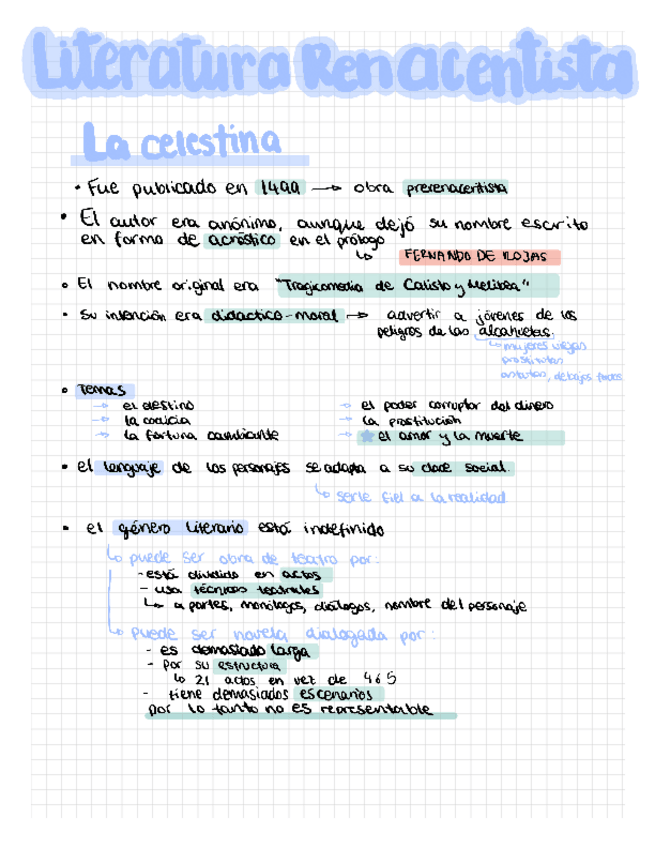 Literatura Renacentista
La celestina
• Fue publicado en 1499 → obra prerenacentista
• El autor era anónimo, aunque dejó su nombre escrito
en forma de acróstico en el prólogo
↳ FERNANDO DE ROJAS
• El nombre original era "Tragicomedia de Calisto y Melibea"
• Su intención era didactico-moral → advertir a jóvenes de los
peligros de las alcahuetas.
↳ mujeres viejas
prostitutas
astutas, de bajos
• Temas
→ el destino → el poder corruptor del dinero
→ la codicia → la prostitución
→ la fortuna cambiante → ★ el amor y la muerte
• el lenguaje de los personajes se adapta a su clase social
↳ serle fiel a la realidad
• el género literario está indefinido
↳ puede ser obra de teatro por:
- está dividido en actos
- usa técnicas teatrales
↳ a partes, monólogos, diálogos, nombre del personaje
↳ puede ser novela dialogada por:
- es demasiado larga
- por su estructura
↳ 21 actos en vez de 4 ó 5
- tiene demasiados escenarios
por lo tanto no es representable